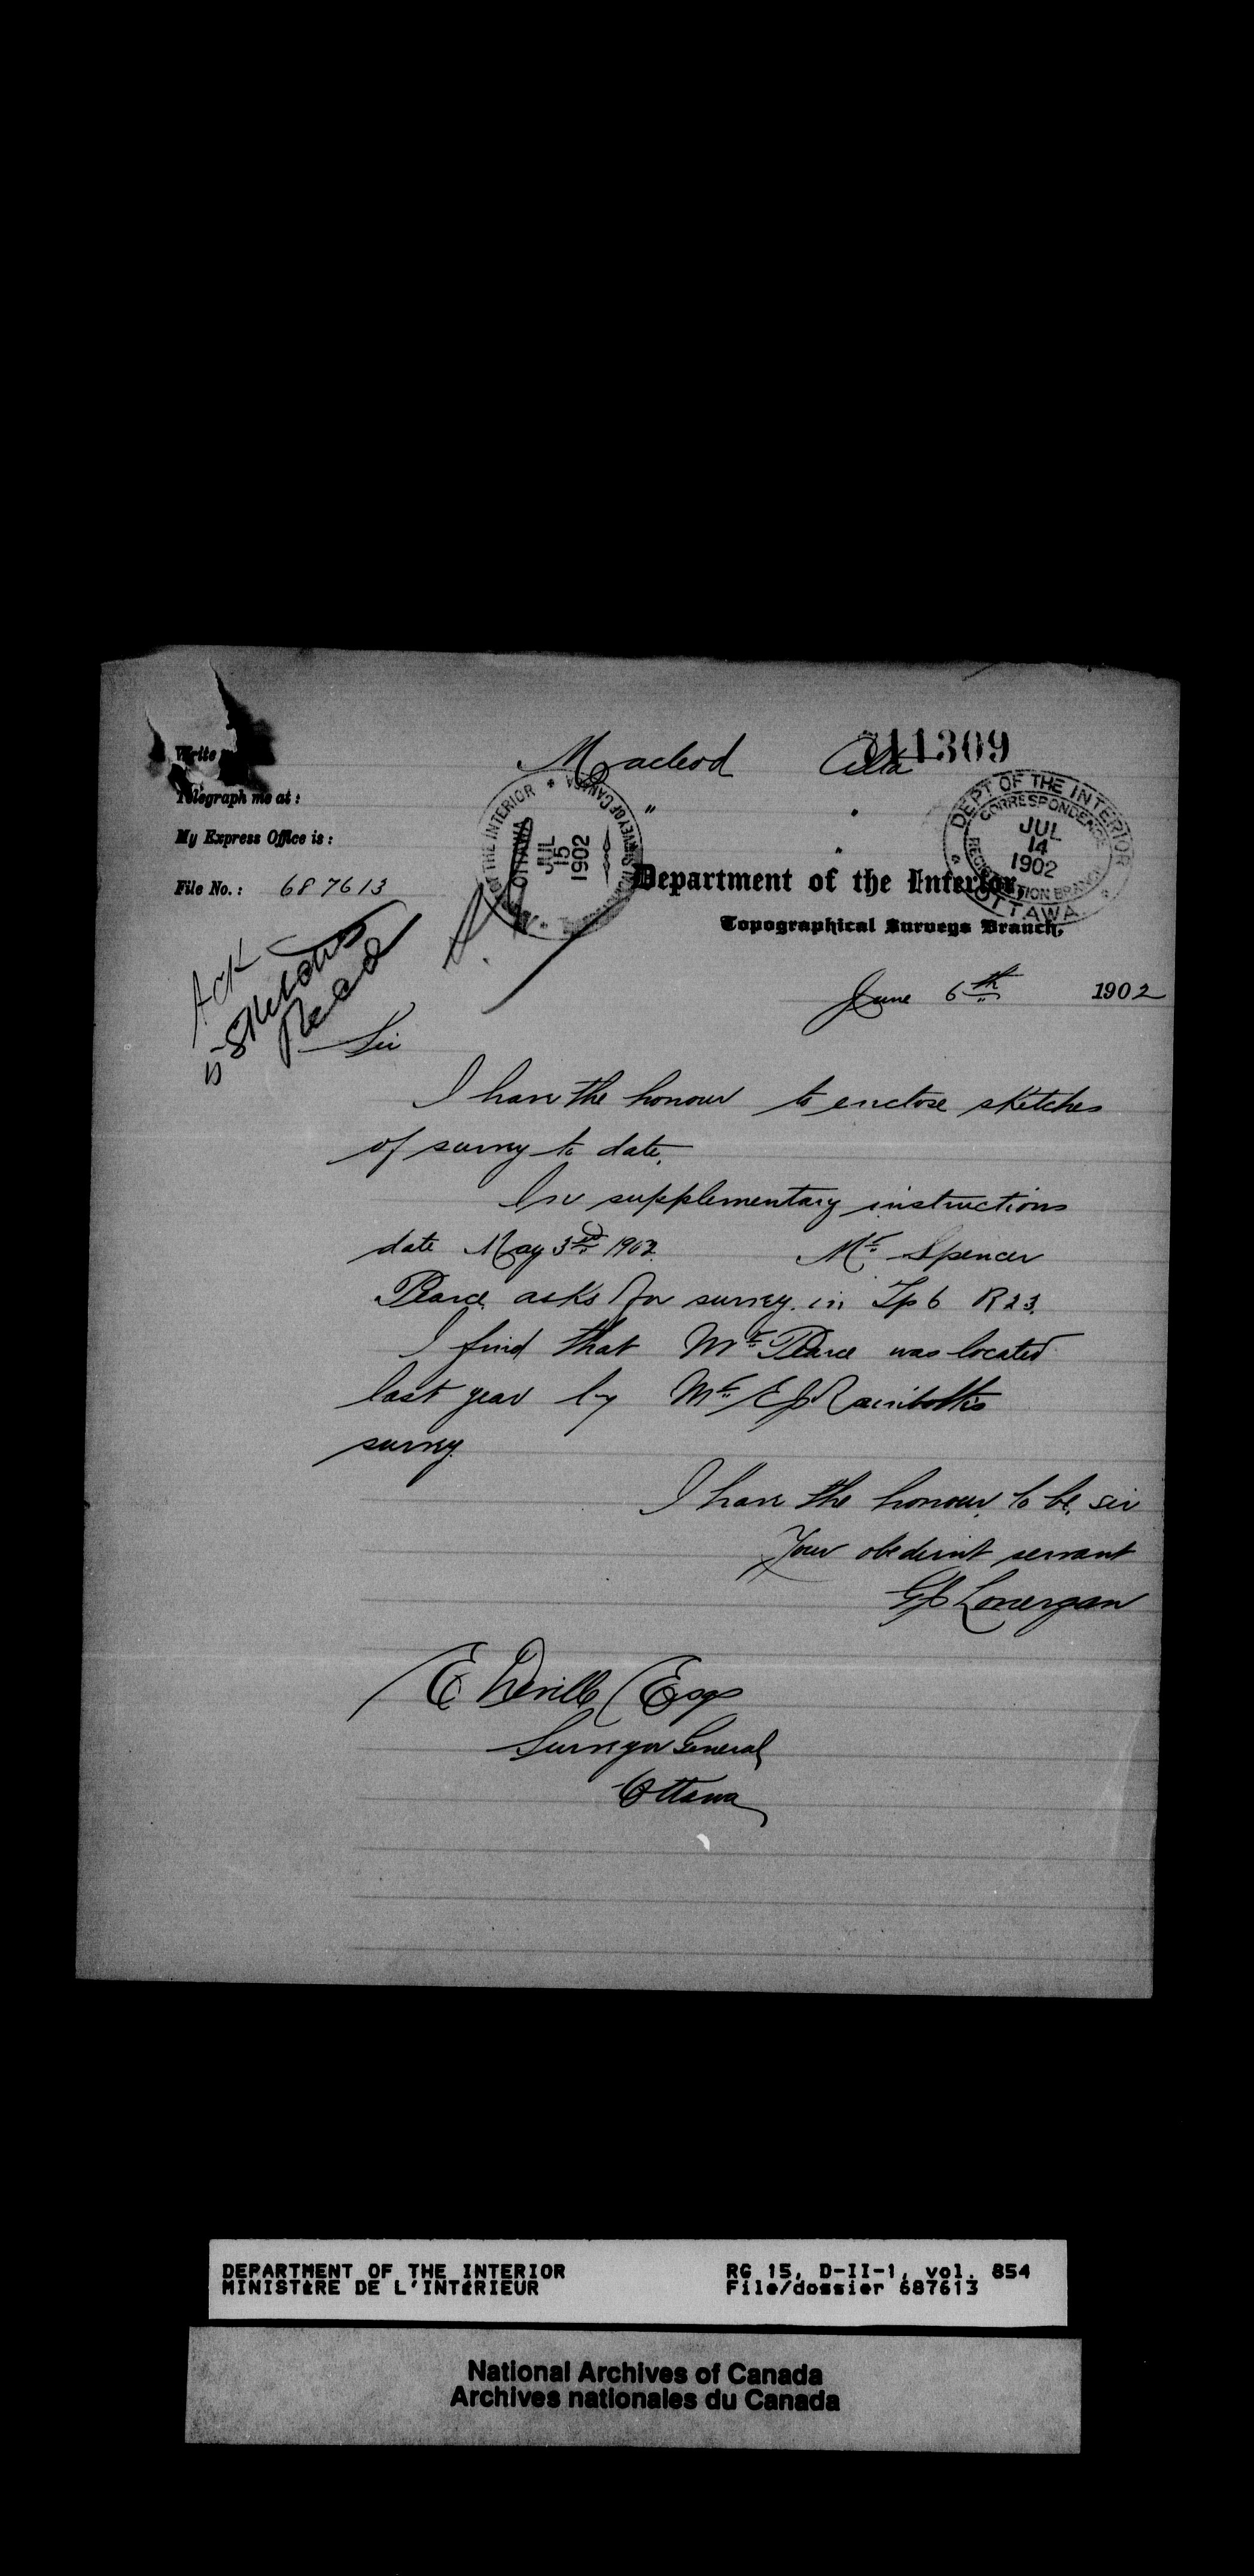 Macleod Alta
11309
Write
Telegraph me at:
My Express Office is:
File No.: 687613
OF THE INTERIOR
OTTAWA
JUL
15
1902
DEPT OF THE INTERIOR
CORRESPONDENCE
JUL
14
1902
REGISTRATION BRANCH
OTTAWA
Department of the Interior,
Topographical Surveys Branch,
June 6th 1902
Ack
5 Sketches
Recd
Sir
I have the honour to enclose sketches
of survey to date.
In supplementary instructions
date May 3rd 1902 Mr Spencer
Pearce asks for survey in Tp 6 R 23.
I find that Mr Pearce was located
last year by Mr E J Rainboth's
survey.
I have the honour to be, sir
Your obedient servant
G J Lonergan
E Deville Esq
Surveyor General
Ottawa
DEPARTMENT OF THE INTERIOR
MINISTÈRE DE L'INTÉRIEUR
RG 15, D-II-1, vol. 854
File/dossier 687613
National Archives of Canada
Archives nationales du Canada